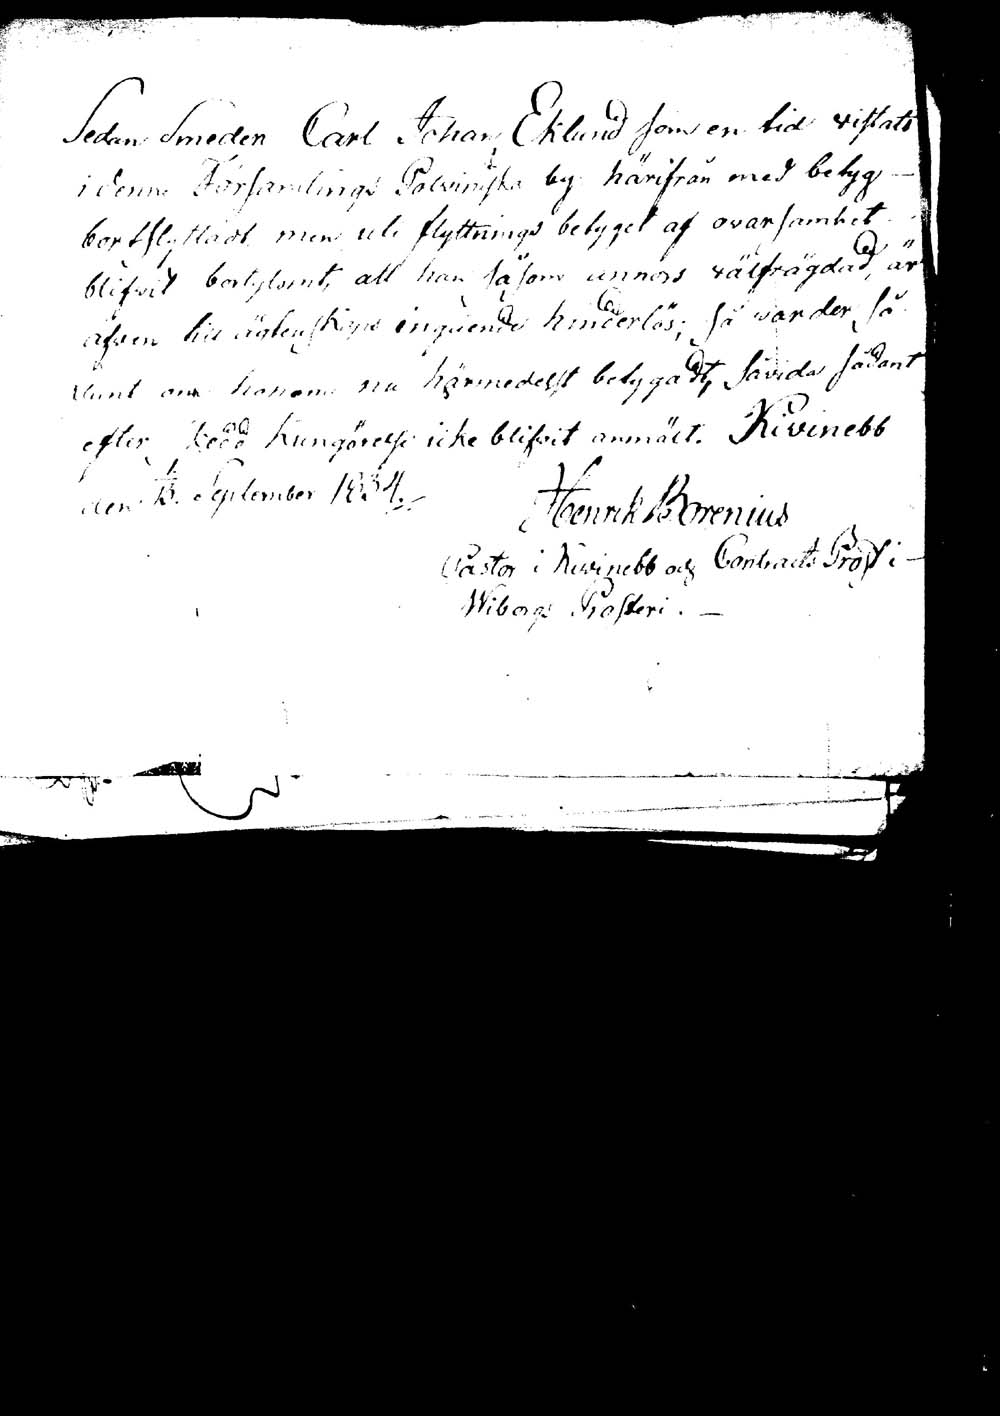 Sedan Smeden Carl Johan Eklund som en tid vistats
i denne Församlings Polvinska by härifrån med betyg
bortflyttadt, men uti flyttnings betyget af ovarsamhet
blifvit bortglömt, att han såsom annors välfrägdad, är
äfven till ägtenskaps ingående hinderlös; så varder så-
dant om honom nu härmedelst betygadt, såvida sådant
efter skedd kungörelse icke blifvit anmält. Kivinebb
den September 1834.
Henrik Borenius
Pastor i Kivinebb och Contracts Prost i
Wiborgs Prosteri.